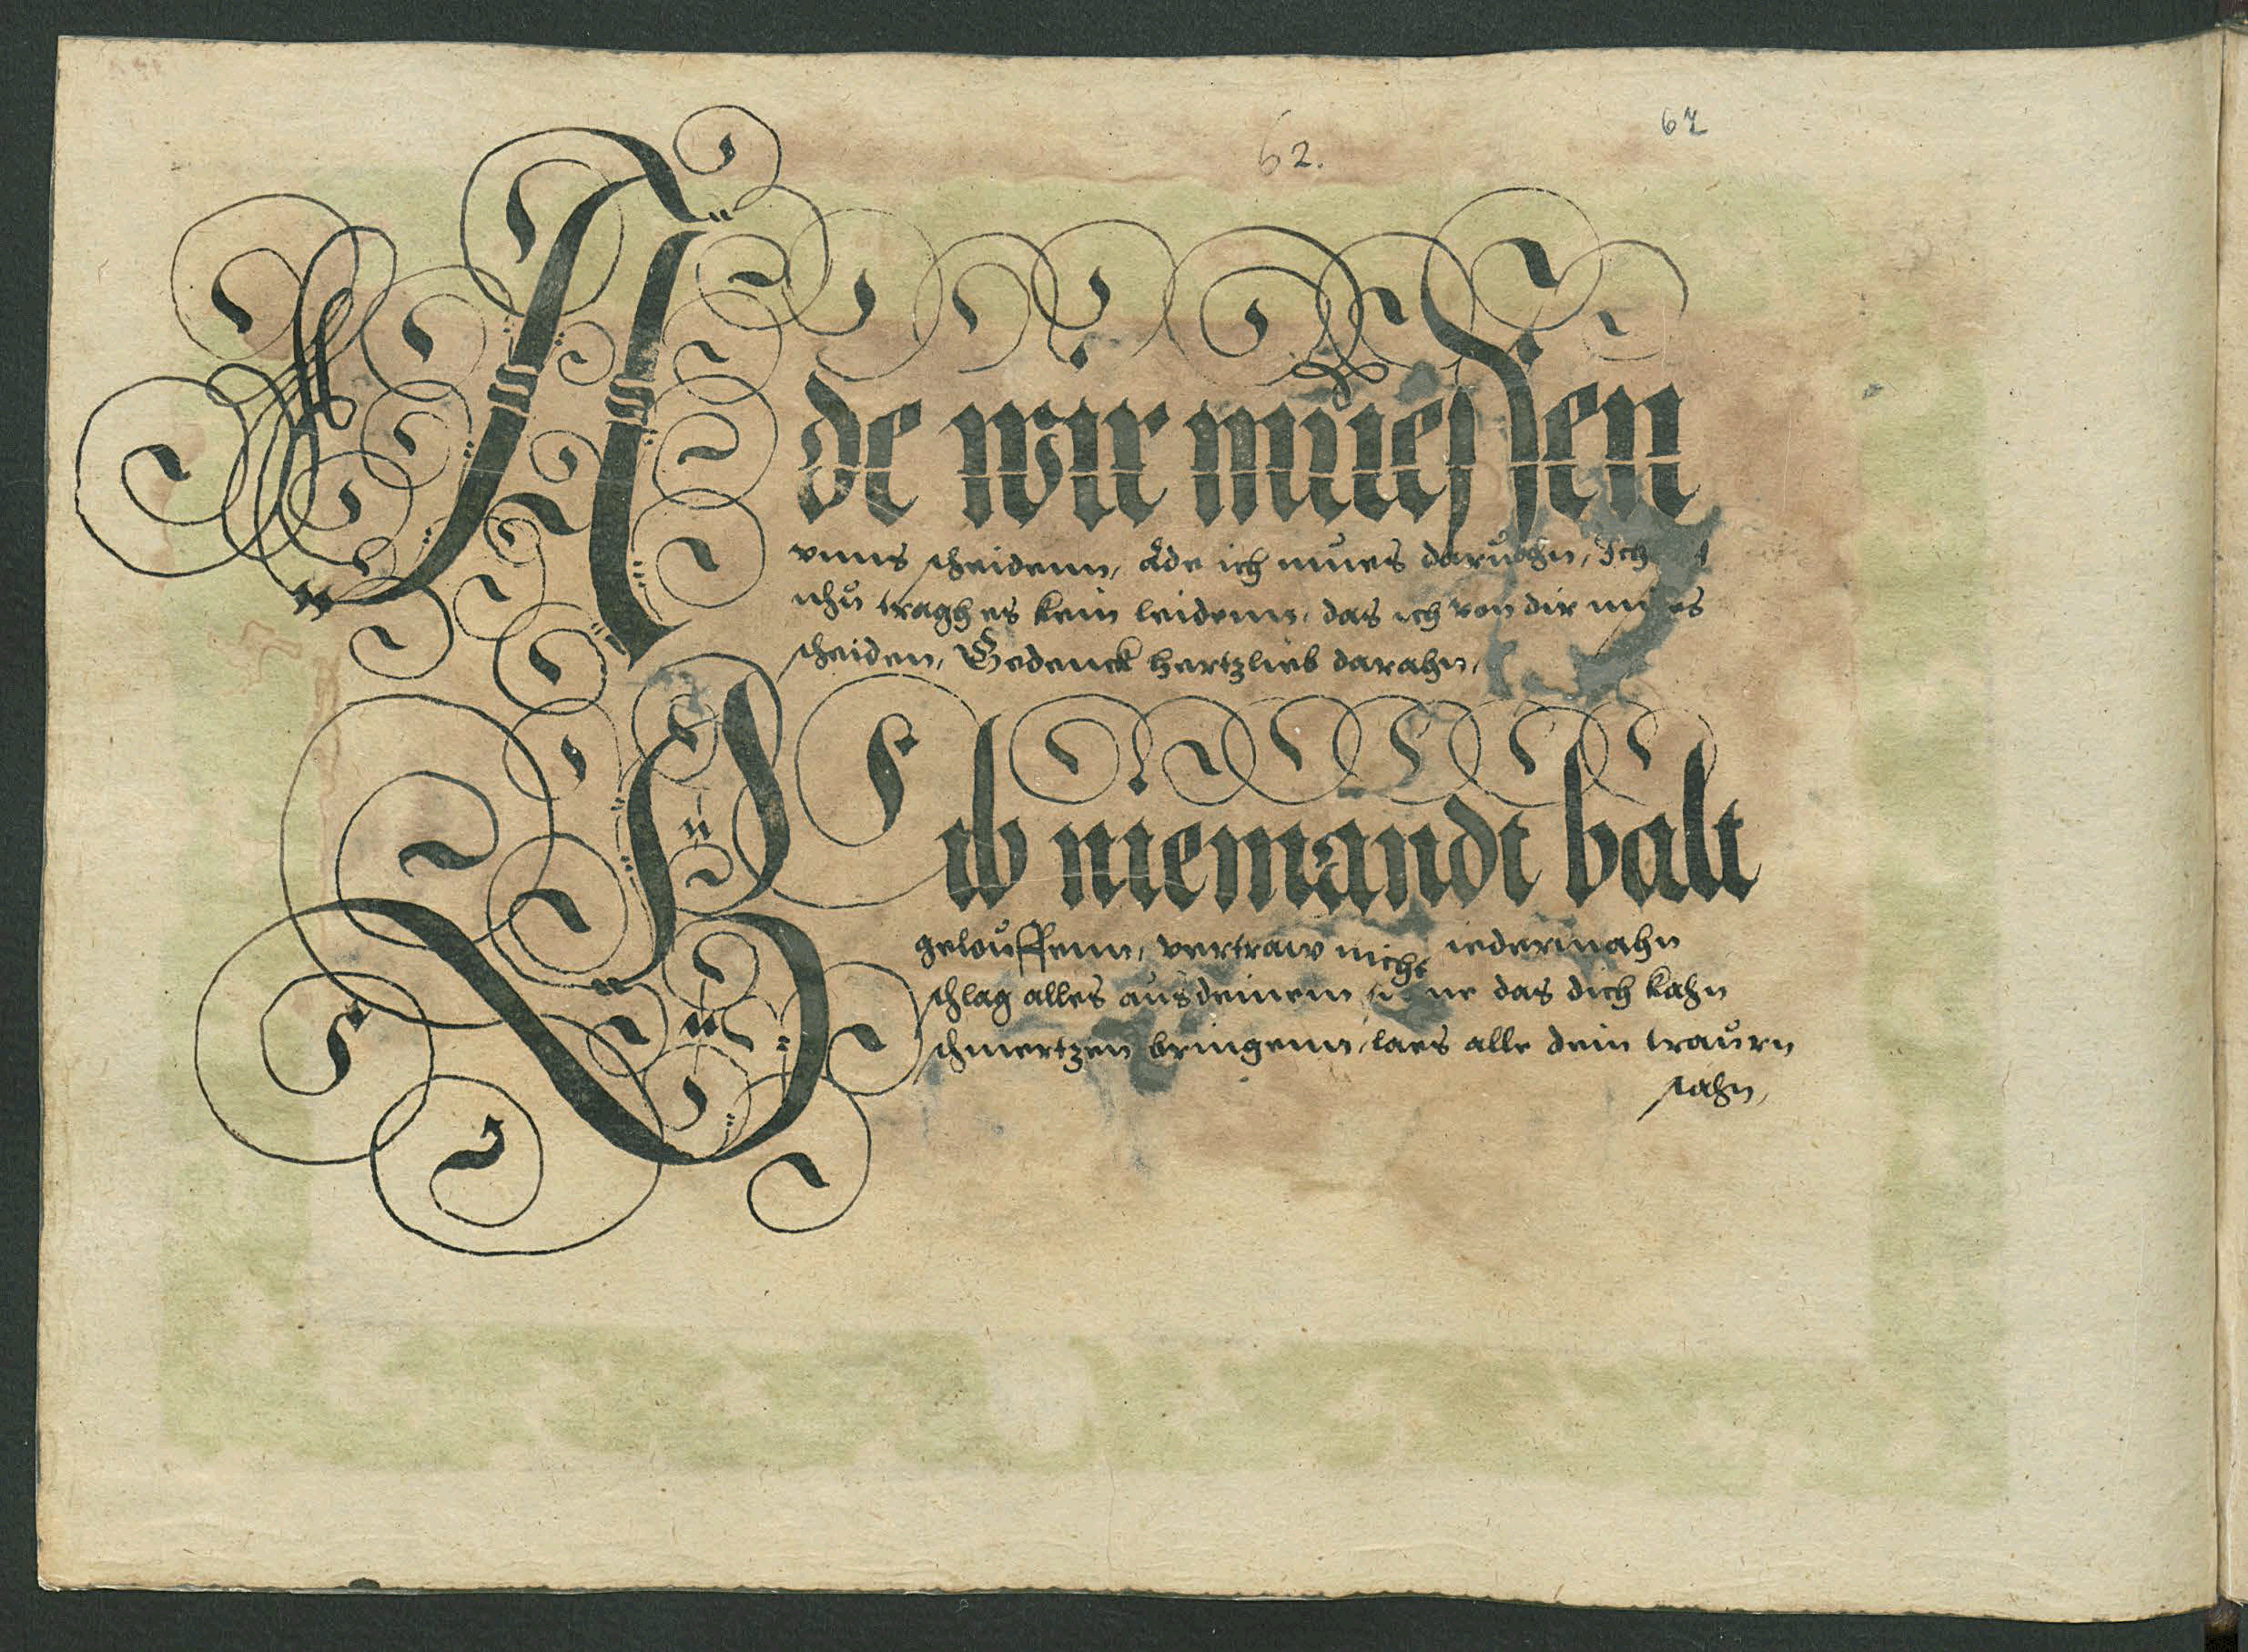 62.
62
Ade wir muessen
vnns scheidenn, Ade ich mues daruohn, Ich
nhu tragh es kein leidenn, das ich von dir mues
scheiden, Gedenck hertzlieb darahn,
Gib niemandt balt
gelouffenn, vertraw nicht iedermahn
schlag alles aus deinem das dich kahn
schmertzen bringenn, laes alle dein traurn
stahn,